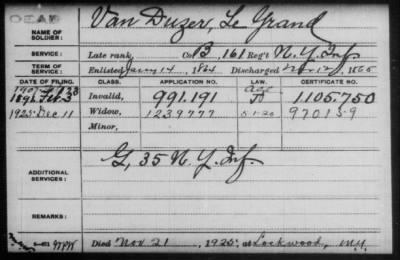 DEAD
NAME OF SOLDIER: Van Duzer, Le Grand
SERVICE: Late rank, Co. B, 161 Reg't N. Y. Inf.
Enlisted Jany 14, 1864 Discharged Nov. 12, 1865
DATE OF FILING. CLASS. APPLICATION NO. LAW. CERTIFICATE NO.
Age
1891 Feb. 3 Invalid, 991.191 1105.750
1925 Dec 11 Widow, 1239777 5-1-20 97015-9
Minor,
ADDITIONAL SERVICES: G, 35 N. Y. Inf.
REMARKS:
Died Nov. 21, 1925, at Lockwood, N.Y.